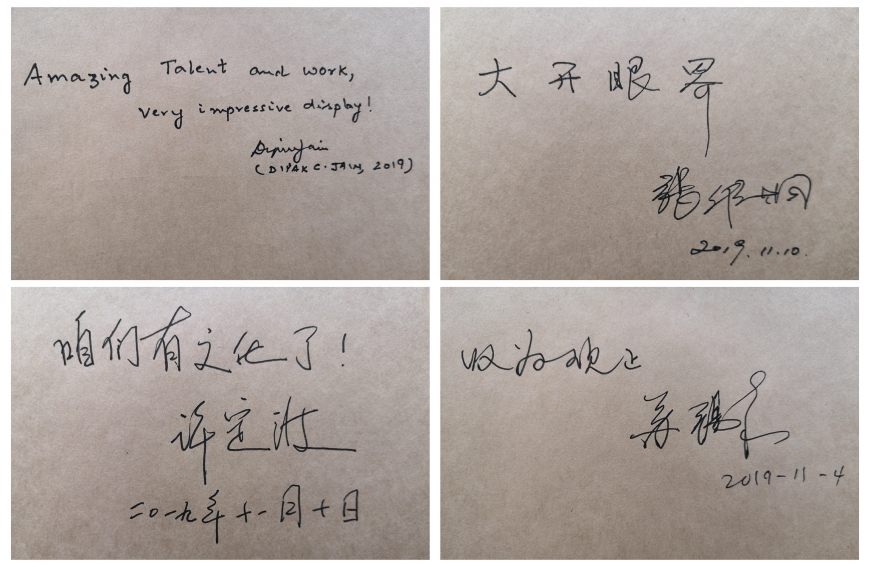 Amazing Talent and work,
very impressive display!
(DIPAK C. JAIN, 2019)
大开眼界
張维炯
2019.11.10.
咱们有文化了！
许定波
二〇一九年十一月十日
叹为观止
2019-11-4